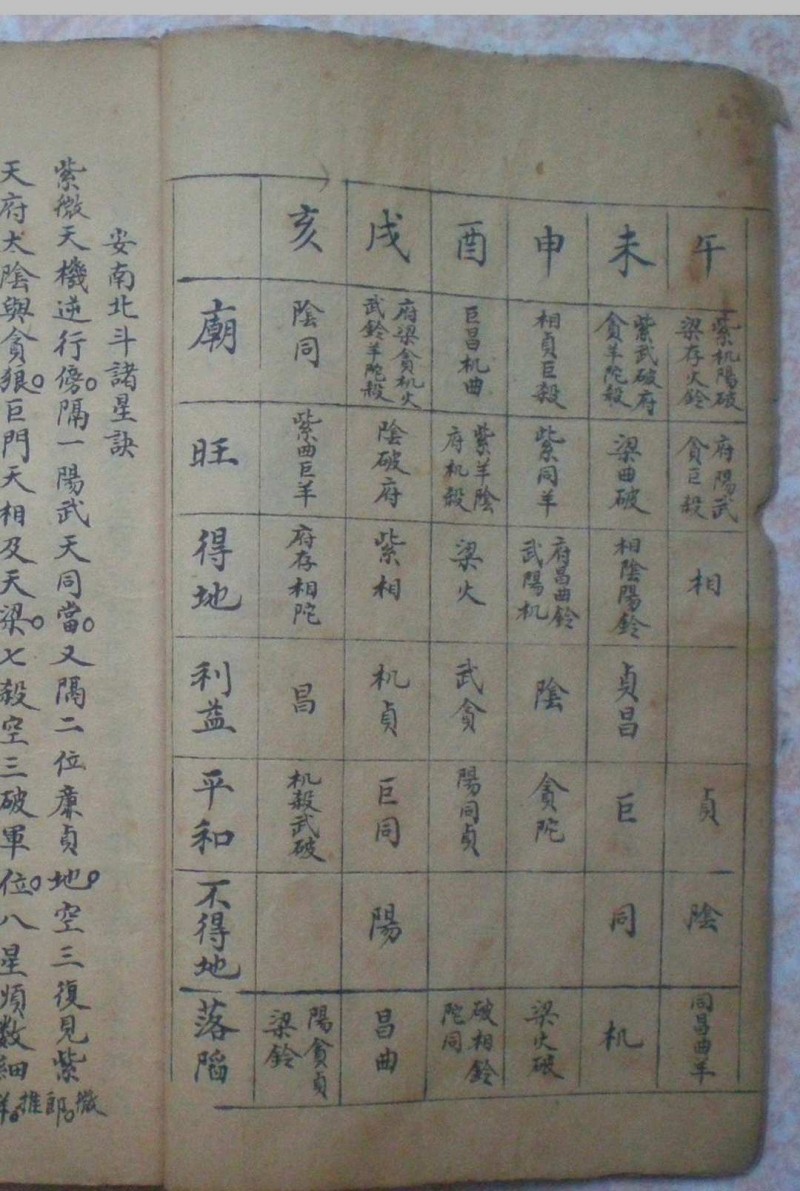 午 未 申 酉 戌 亥
廟 紫机陽破梁存火鈴 紫武破府貪羊陀殺 相貞巨殺 巨昌机曲 府梁貪机火武鈴羊陀殺 陰同
旺 府陽武貪巨殺 梁曲破 紫同羊 紫羊陰府机殺 陰破府 紫曲巨羊
得地 相 相陰陽鈴 府昌曲鈴武陽机 梁火 紫相 府存相陀
利益 貞昌 陰 武貪 机貞 昌
平和 貞 巨 貪陀 陽同貞 巨同 机殺武破
不得地 陰 同 陽
落陷 同昌曲羊 机 梁火破 破相鈴陀同 昌曲 陽貪貞梁鈴
安南北斗諸星訣
紫微天機逆行傍。隔一陽武天同當。又隔二位亷貞地。空三復見紫微郎。
天府太陰與貪狼。巨門天相及天梁。七殺空三破軍位。八星順数細推